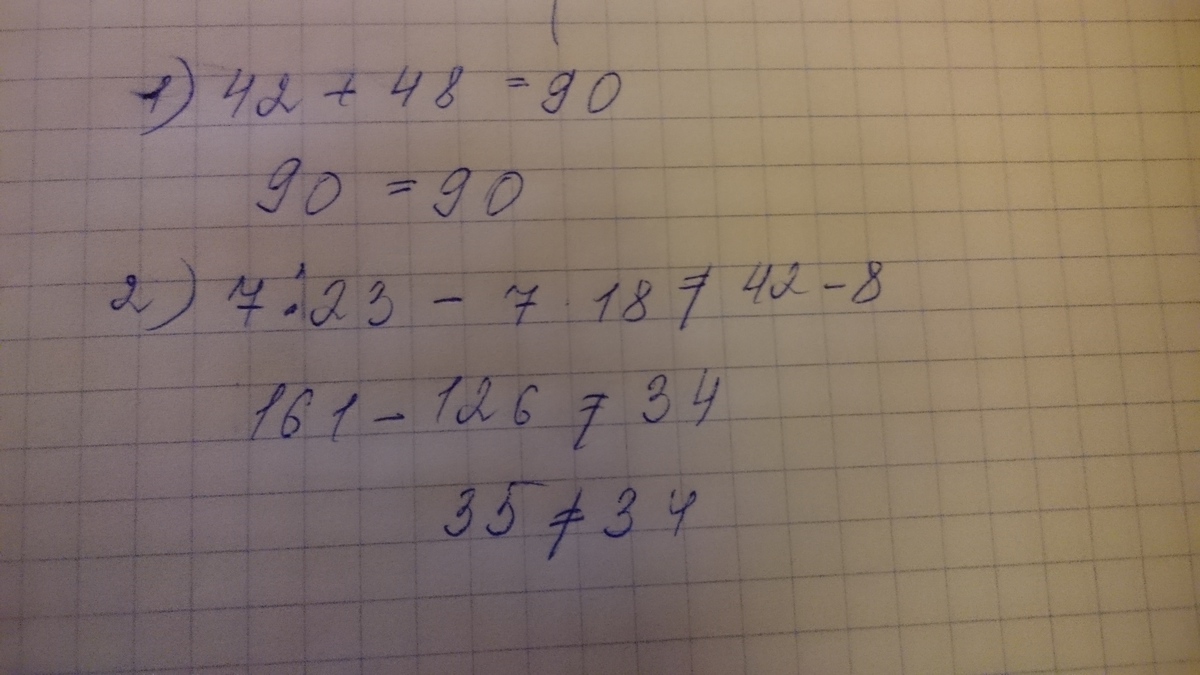 1) 42 + 48 = 90
90 = 90
2) 7 · 23 - 7 · 18 ≠ 42 - 8
161 - 126 ≠ 34
35 ≠ 34